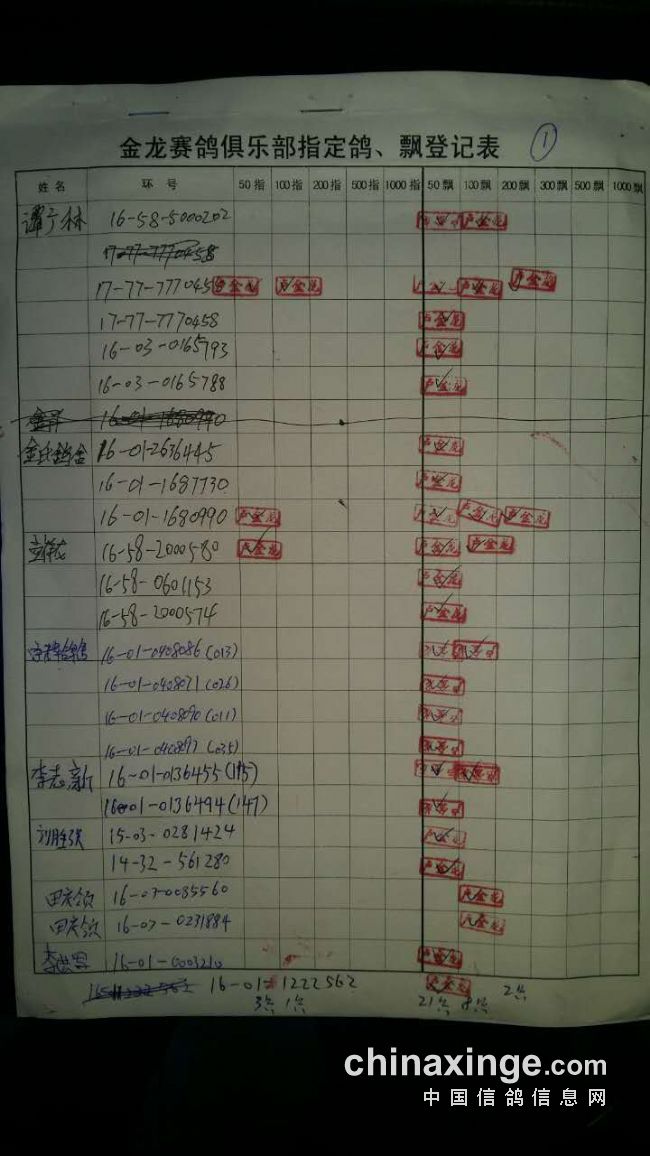 金龙赛鸽俱乐部指定鸽、飘登记表 1
姓名 环号 50指 100指 200指 500指 1000指 50飘 100飘 200飘 300飘 500飘 1000飘
谭广林 16-58-5000202
17-77-7770458
17-77-777045 卢金龙 卢金龙 卢金龙 卢金龙
17-77-7770458 卢金龙
16-03-0165793 卢金龙
16-03-0165788 卢金龙
16-01-1680990
16-01-2636445 卢金龙
16-01-1687730 卢金龙
16-01-1680990 卢金龙 卢金龙 卢金龙 卢金龙
16-58-2000580 卢金龙 卢金龙 卢金龙
16-58-0601153 卢金龙
16-58-2000574 卢金龙
16-01-0408086(013)
16-01-0408071(026)
16-01-0408090(011)
16-01-0408097(035)
李志新 16-01-0136455(115)
16-01-0136494(147)
15-03-0281424 卢金龙
14-32-561280 卢金龙
田庆领 16-03-0085560 卢金龙
田庆领 16-03-0231884 卢金龙
16-01-0003210 卢金龙
16-01-1222562
3只 1只 21只 8只 2只
chinaxinge.com
中国信鸽信息网